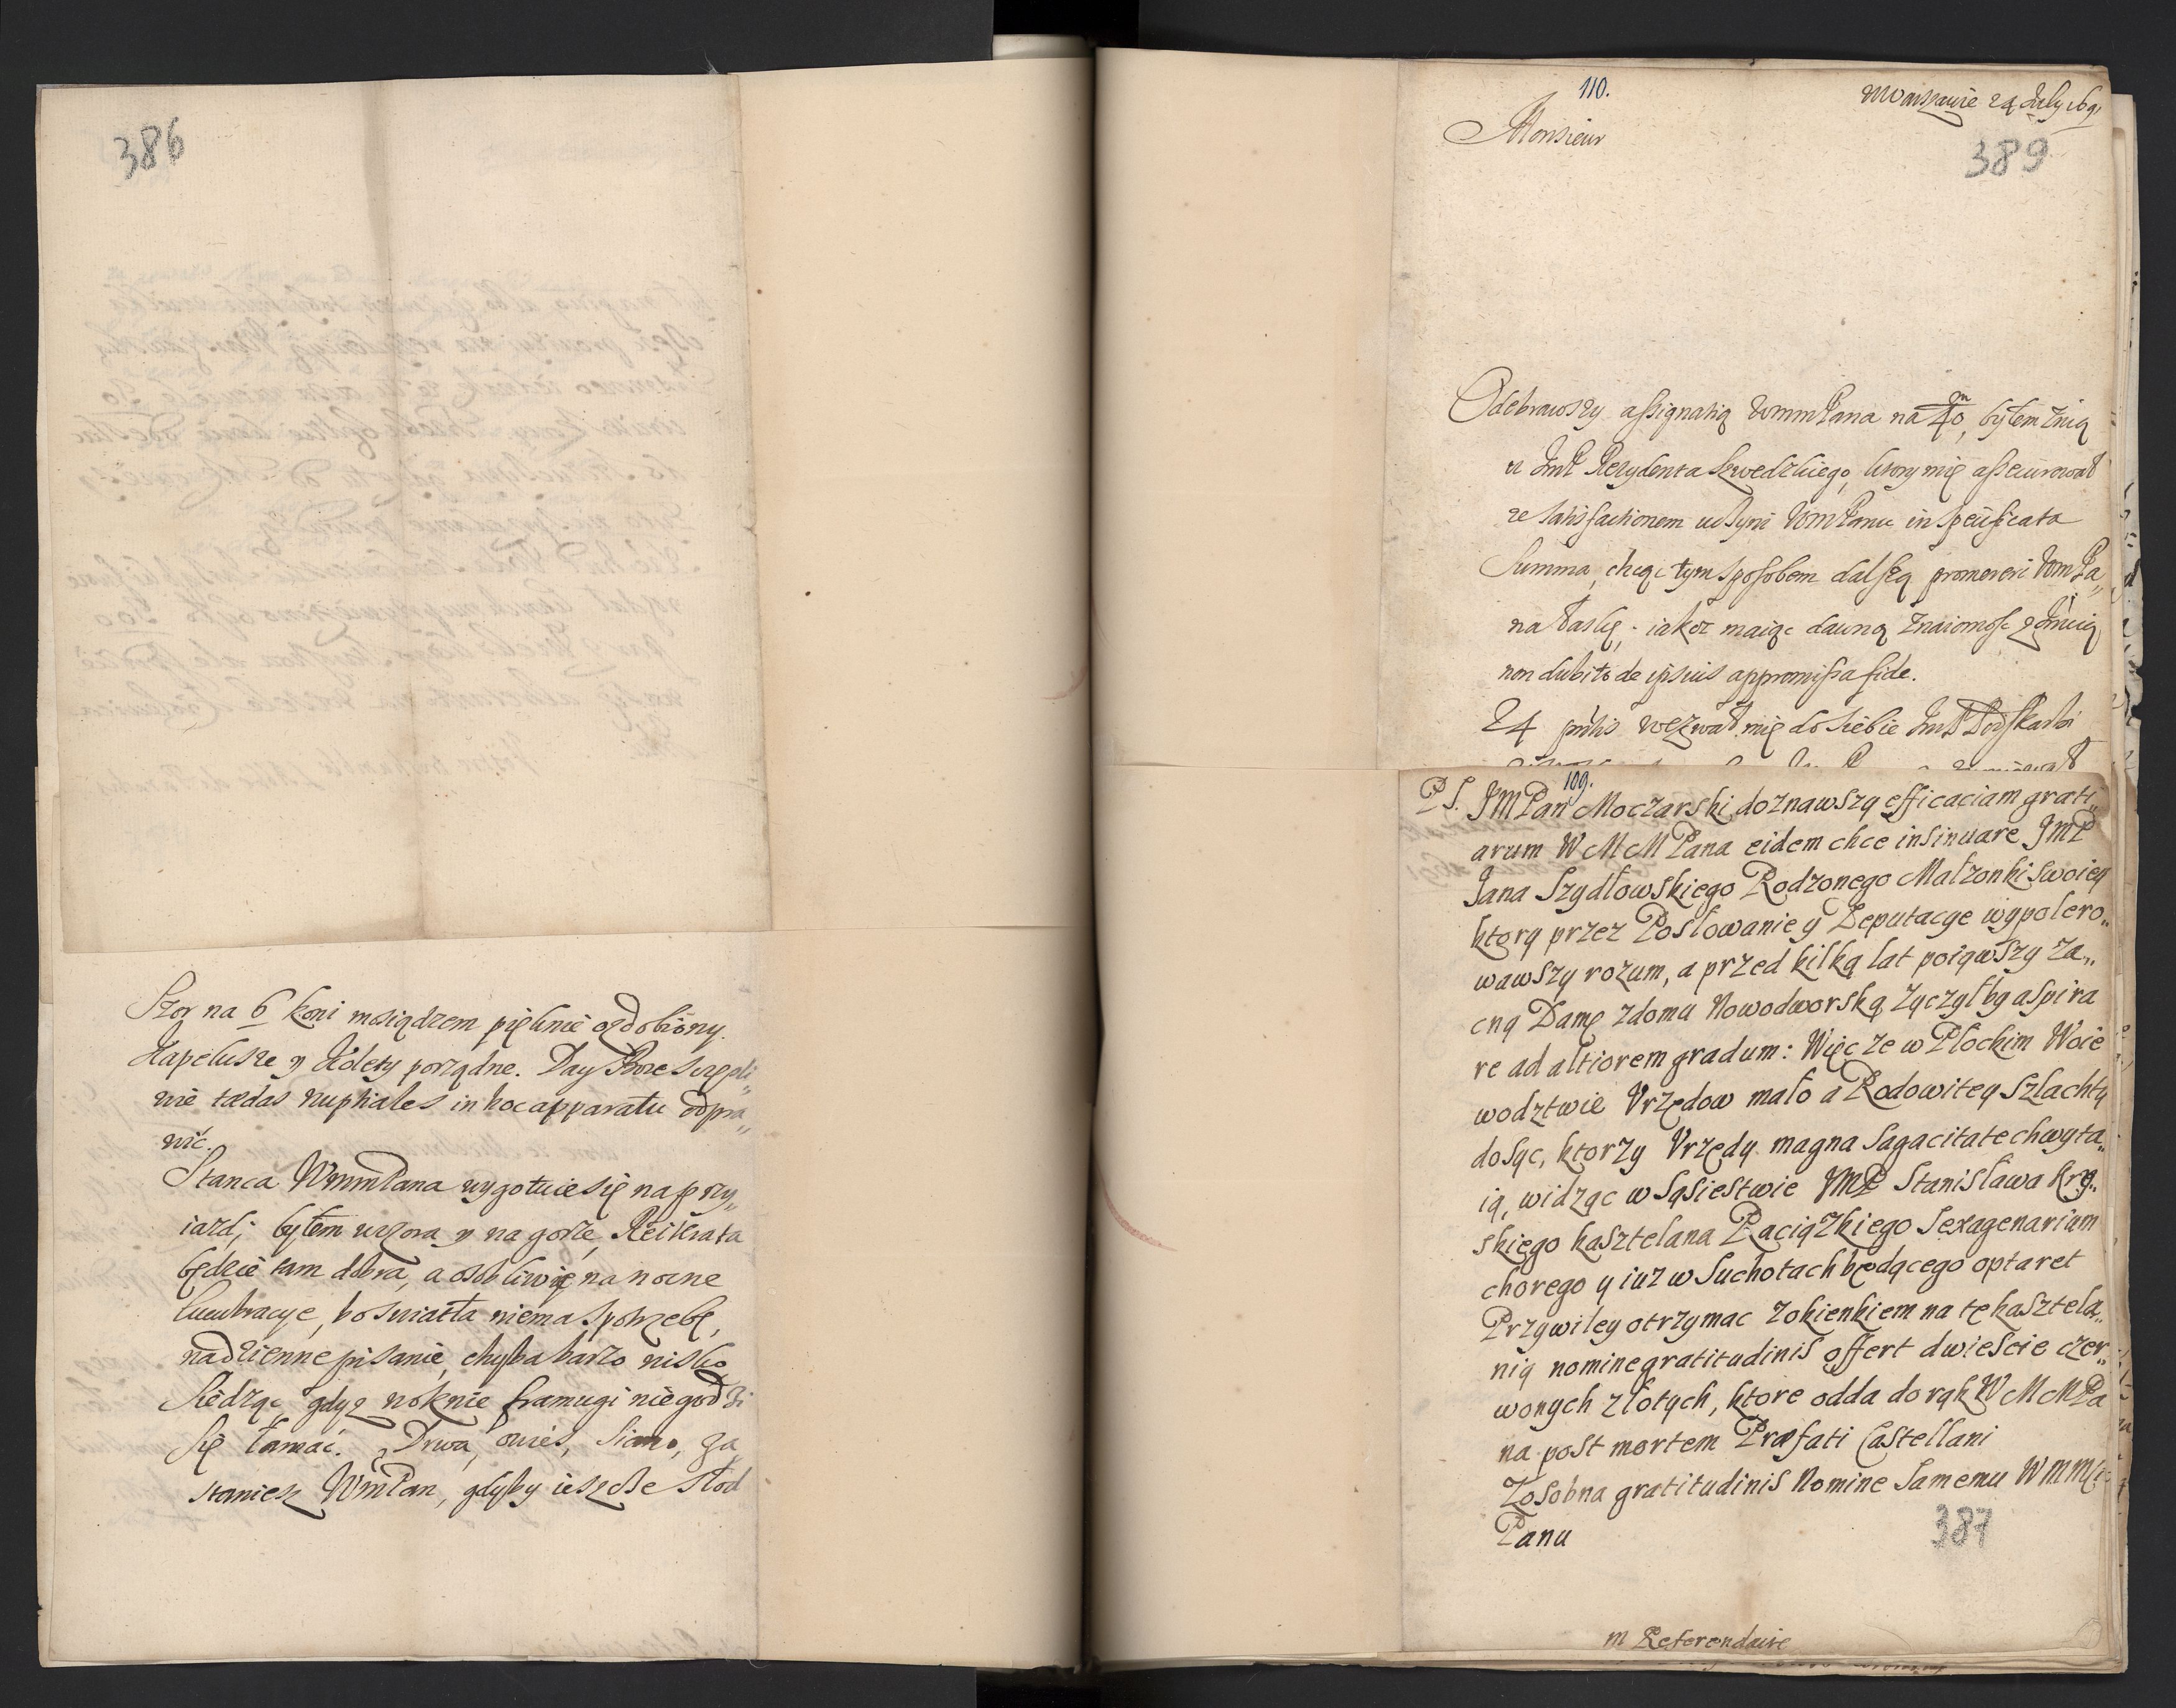 386
Szor na 6 koni mosiądzem pięknie ozdobiony.
Kapelusze y Kolety porządne. Day Boze szczęśli„
wie tædas nuptiales in hoc apparatu odpra„
wić.
Stanca WmmPana wygotuie się na przy„
iazd; byłem wczora y na gorze, Reitirata
będzie tam dobra, a osobliwie na nocne
lucubracye, bo swiatła niema potrzebę,
na dzienne pisanie, chyba barzo nisko
siedząc, gdyz w oknie framugi niegodzi
się łamać. Drwa, owies, siano, za
staniesz WmPan, gdyby ieszcze słod
110.
w Warszawie 24 July 1691
Monsieur
389
Odebrawszy assignatią WmmPana na 40, byłem znią
u JmP Rezydenta Szwedzkiego, ktory mię asseurował
ze satisfactionem uczyni WmPanu in specificata
Summa, chcąc tym sposobem dalszą promereri WmPa„
na łaskę, iakoz maiąc dawną znaiomosc
non dubito de ipsius appromissa fide.
24 wezwał mię do siebie JmP Podskarbi
109.
PS. JMPan Moczarski doznawszy efficaciam grati„
arum WMMPana eidem chce insinuare JMP
Jana Szydłowskiego Rodzonego Małzonki swoiey
ktory przez Posłowanie y Deputacye wypolero„
wawszy rozum, a przed kilką lat poiąwszy Za„
cną Damę z domu Nowodworską zyczył by aspira
re ad altiorem gradum: Więc ze w Płockim Woie
wodztwie Vrzędow mało a Rodowitey Szlachty
dosyc, ktorzy Vrzędy magna sagacitate chwyta„
ią, widząc w sąsiestwie JMP Stanisława Kry„
skiego kasztelana Raciązkiego Sexagenarium
chorego y iuz w Suchotach będącego optaret
Przywiley otrzymac z okienkiem na tę kasztela„
nią nomine gratitudinis offert dwiescie czer„
wonych złotych, ktore odda do rąk WMMPa
na post mortem Præfati Castellani
Zosobna gratitudinis Nomine samemu WMM
Panu
387
m Referendaire